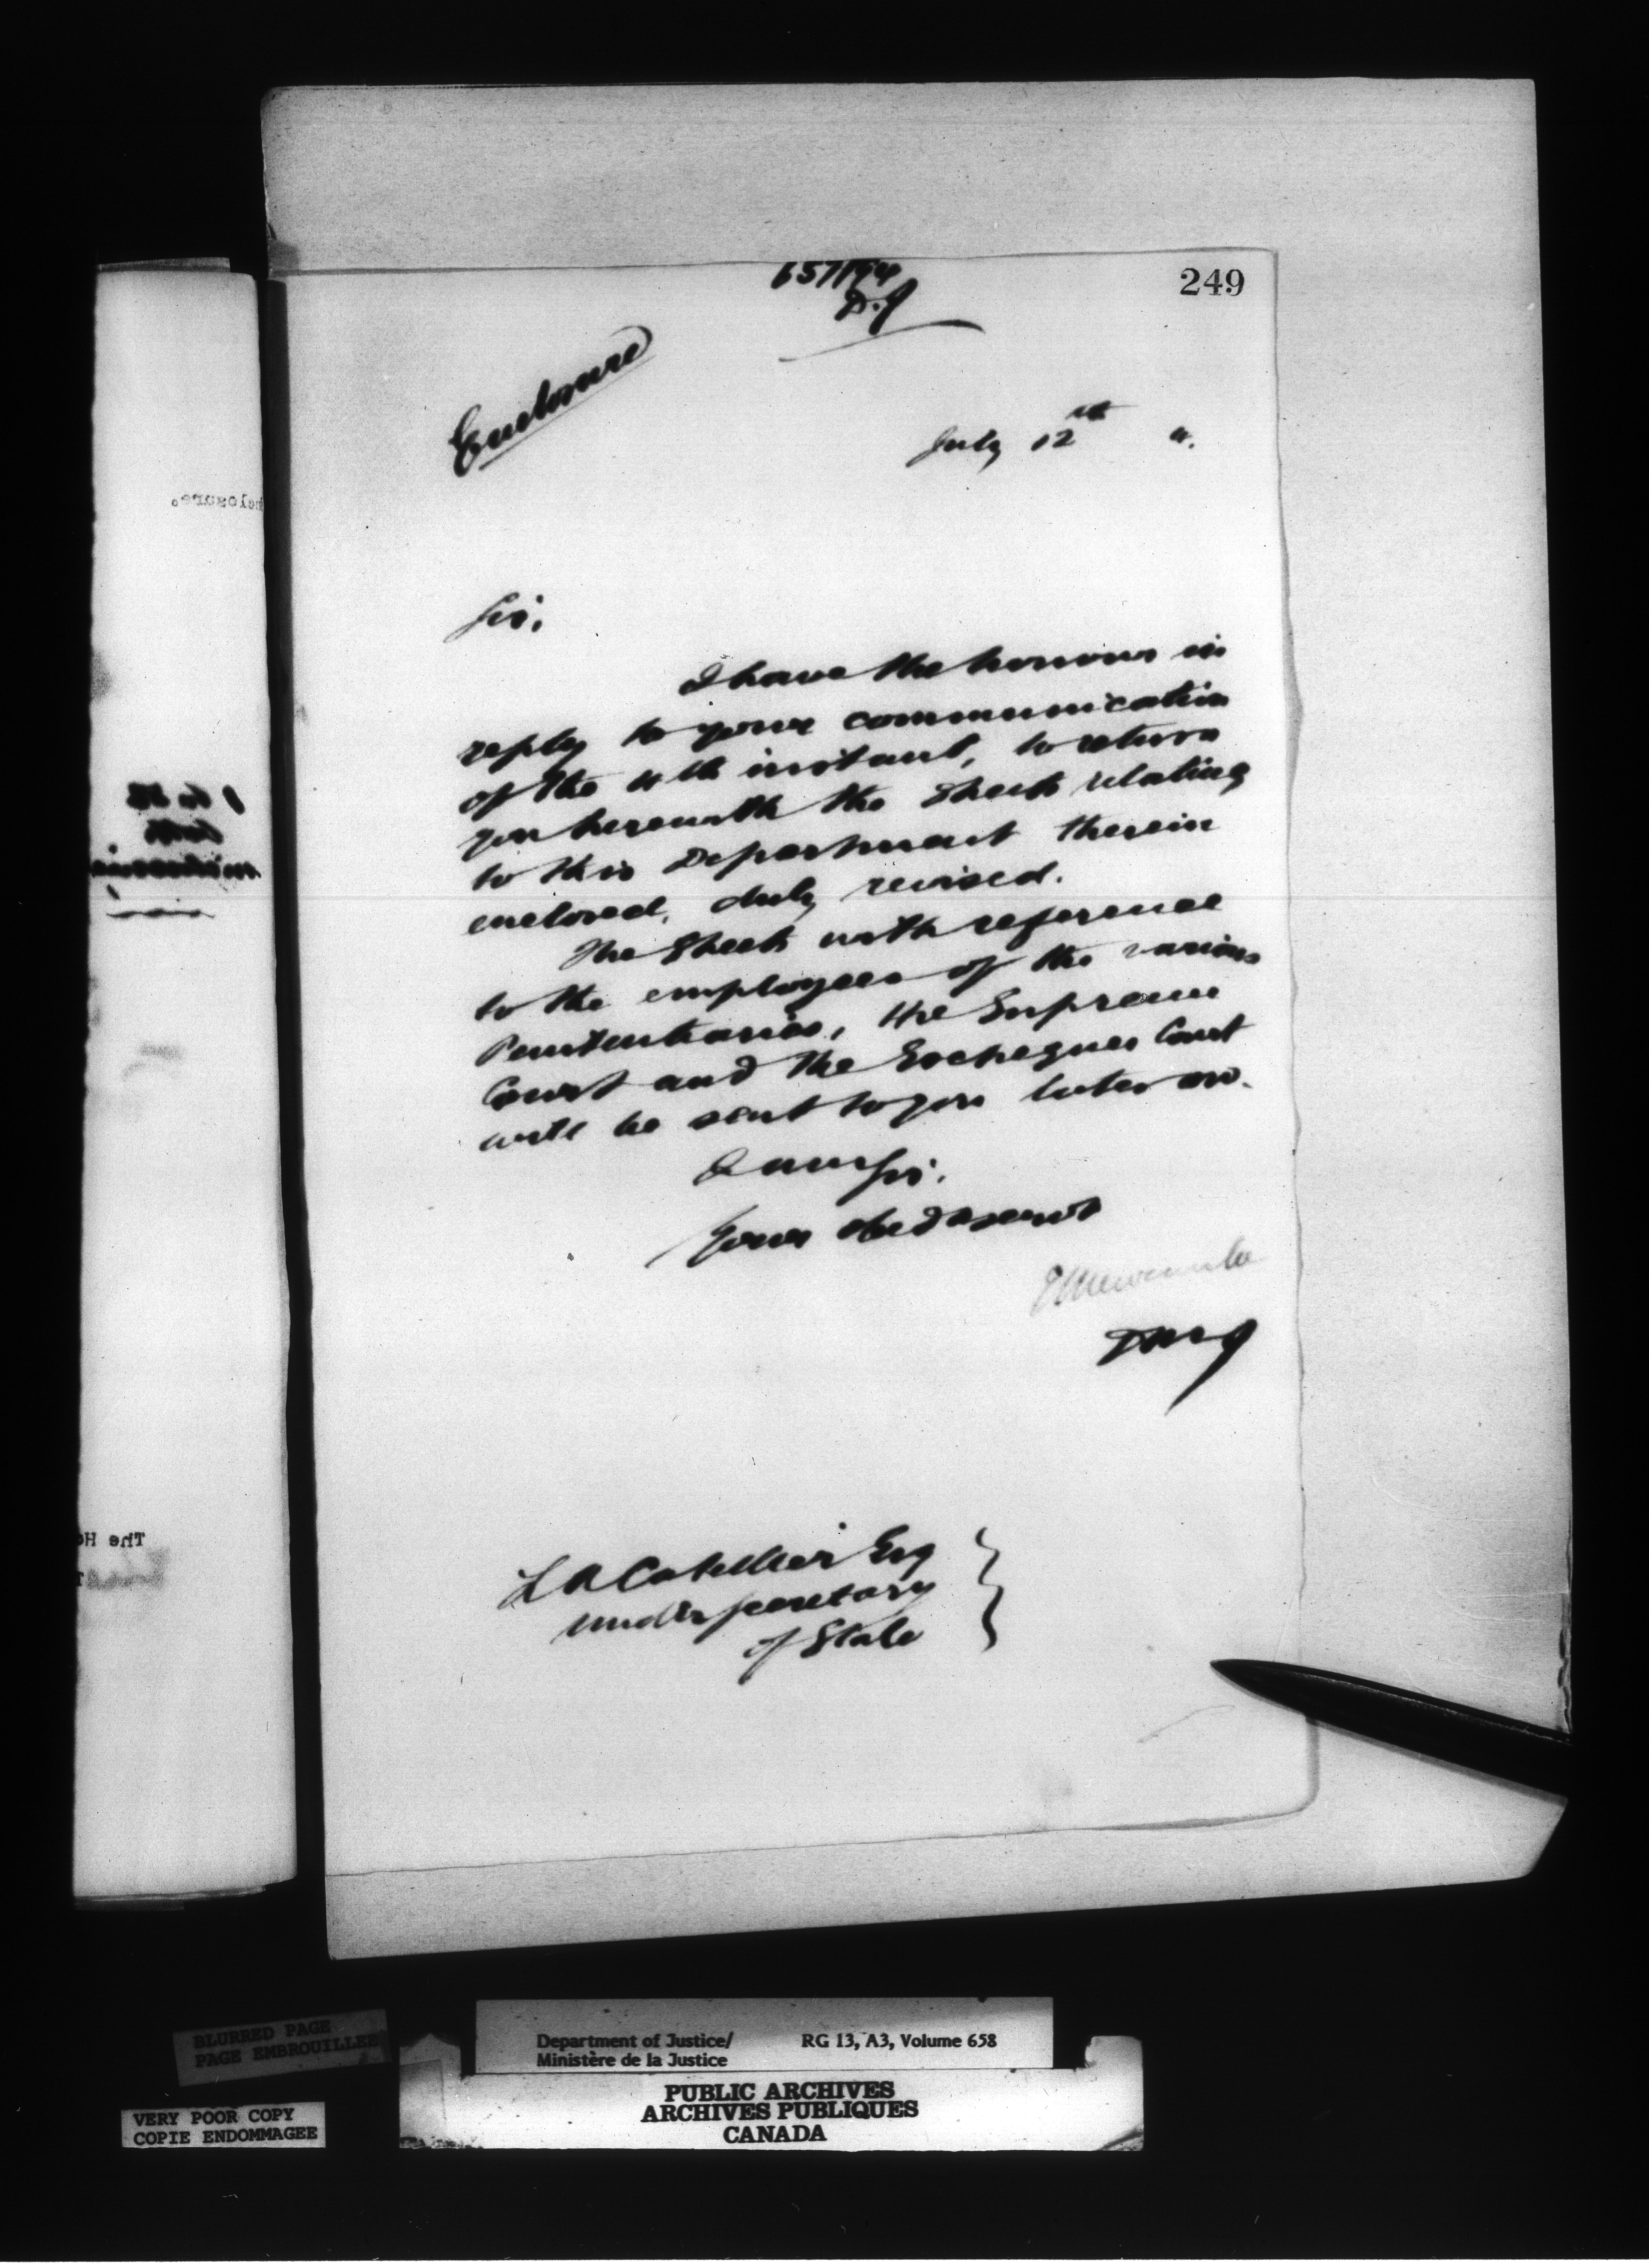 249
657/94
D.J
Enclosure
July 12th 4.
Sir,
I have the honour in
reply to your communication
of the 4th instant, to return
you herewith the sheets relating
to this Department therein
enclosed, duly revised.
The sheets with reference
to the employees of the various
Penitentiaries, the Supreme
Court and the Exchequer Court
will be sent to you later on.
I am Sir,
Your obed servt
E Newcombe
DMJ
L A Catellier Esq
Under Secretary
of State
nclosure.
The Ho
BLURRED PAGE
PAGE EMBROUILLEE
VERY POOR COPY
COPIE ENDOMMAGEE
Department of Justice/ RG 13, A3, Volume 658
Ministère de la Justice
PUBLIC ARCHIVES
ARCHIVES PUBLIQUES
CANADA